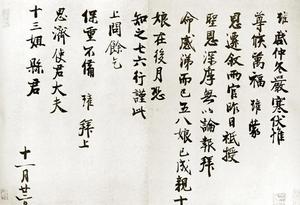 瓘啟仲冬嚴寒伏惟
尊候萬福 瓘蒙
恩遷敘兩官昨日祗授
聖恩深厚無以論報拜
命感涕而已五八娘已成親十
娘在後月恐
知之七六行謹此
上聞餘乞
保重不備 瓘拜上
思濟使君大夫
十三姐縣君
十一月廿